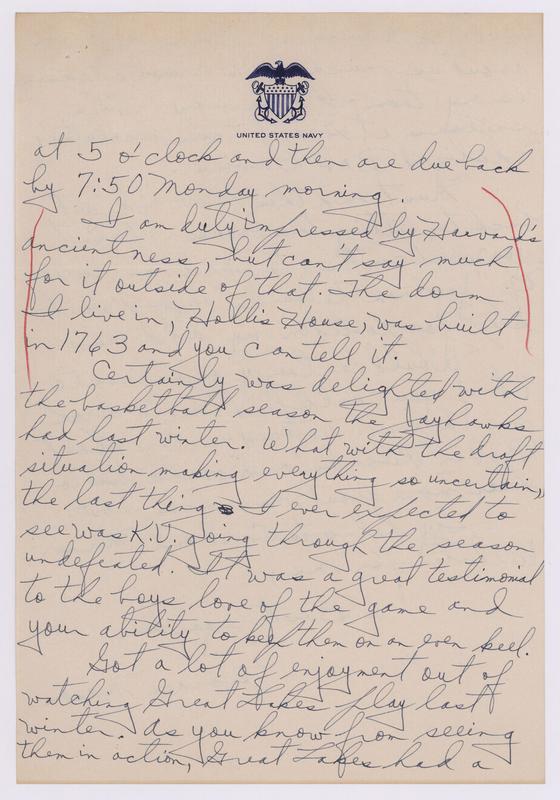 UNITED STATES NAVY
at 5 o'clock and then are due back
by 7:50 Monday morning.
I am duly impressed by Harvard's
ancientness, but can't say much
for it outside of that. The dorm
I live in, Hollis House, was built
in 1763 and you can tell it.
Certainly was delighted with
the basketball season the Jayhawks
had last winter. What with the draft
situation making everything so uncertain,
the last thing I ever expected to
see was K.U. going through the season
undefeated. It was a great testimonial
to the boys love of the game and
your ability to keep them on an even keel.
Got a lot of enjoyment out of
watching Great Lakes play last
winter. As you know from seeing
them in action, Great Lakes had a